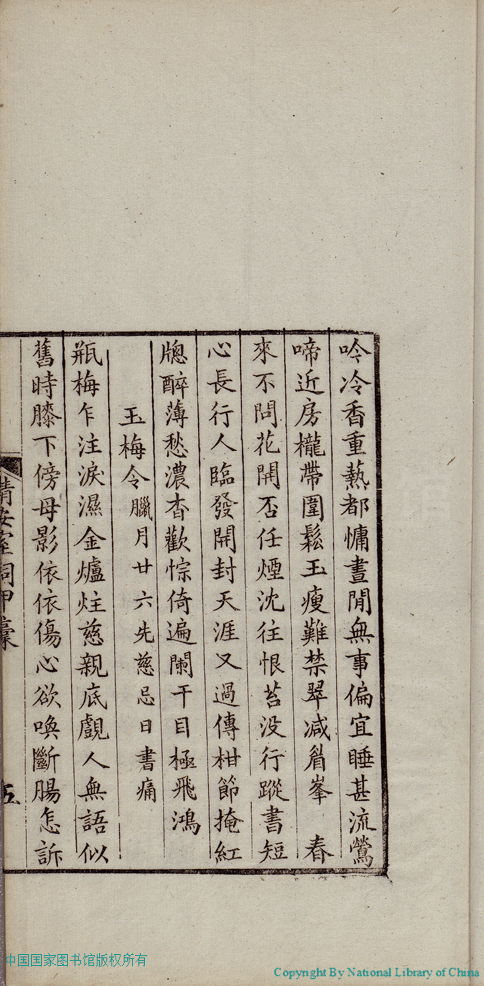 吟冷香重熱都慵晝閒無事偏宜睡甚流鶯
啼近房櫳帶圍鬆玉瘦難禁翠減眉峯　春
來不問花開否任煙沈往恨苔没行蹤書短
心長行人臨發開封天涯又過傳柑節掩紅
牕醉薄愁濃杳歡悰倚遍闌干目極飛鴻
玉梅令臘月廿六先慈忌日書痛
瓶梅乍注淚濕金爐炷慈親底覷人無語似
舊時膝下傍母影依依傷心欲喚斷腸怎訴
室詞甲稾
五
中国国家图书馆版权所有
Copyright By National Library of China